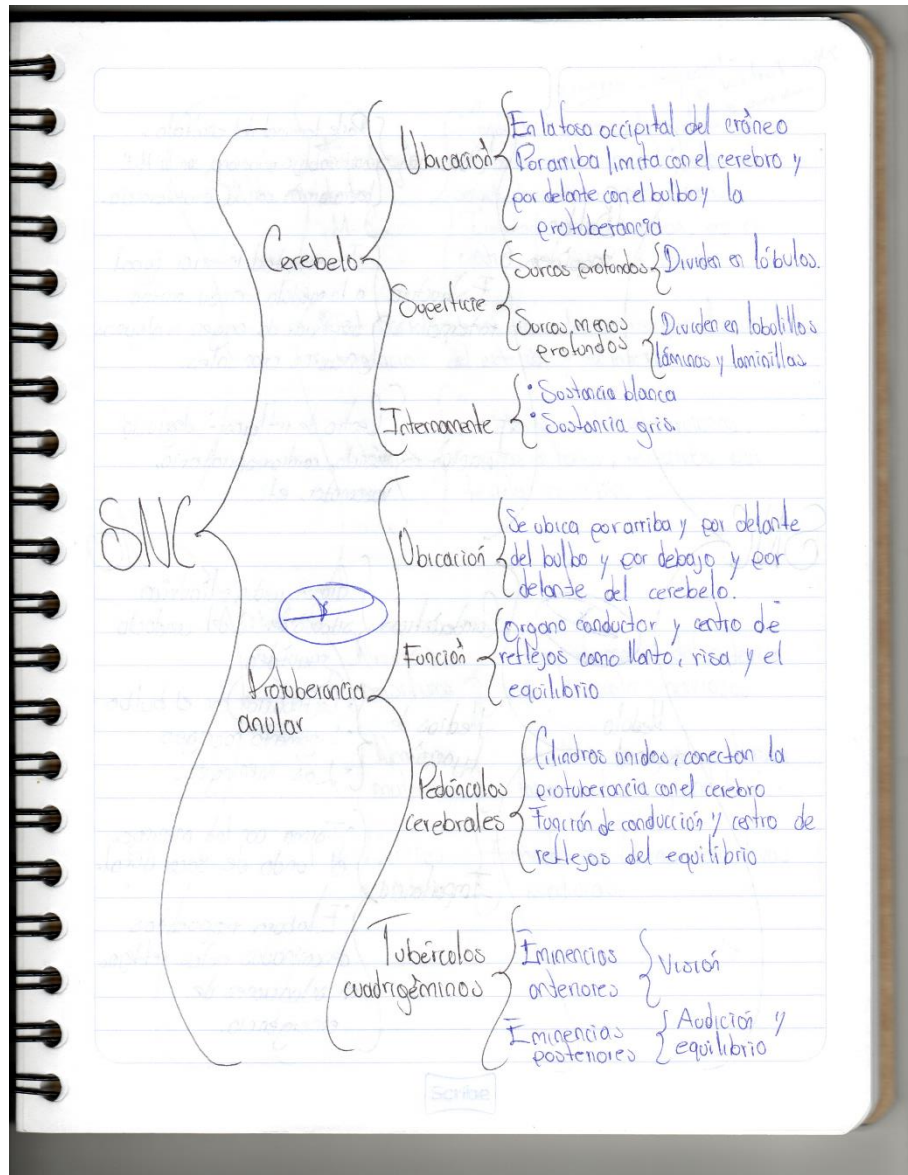 SNC
Cerebelo
Ubicación
En la fosa occipital del cráneo
Por arriba limita con el cerebro y
por delante con el bulbo y la
protoberancia
Superficie
Surcos profundos
Dividen en lóbulos.
Surcos menos
profundos
Dividen en lobolillos
láminas y laminillas
Internamente
• Sostancia blanca
• Sostancia gris.
Protuberancia
anular
Ubicación
Se ubica por arriba y por delante
del bulbo y por debajo y por
delante del cerebelo.
Función
Organo conductor y centro de
reflejos como llanto, risa y el
equilibrio
Pedúncolos
cerebrales
Cilindros unidos, conectan la
protoberancia con el cerebro
Función de conducción y centro de
reflejos del equilibrio
Tubércolos
cuadrigéminos
Eminencias
anteriores
Visión
Eminencias
posteriores
Audición y
equilibrio
Scribe